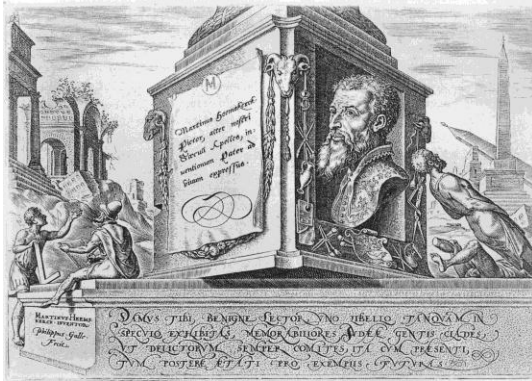 M
Martinus Heemskerck
Pictor, alter nostri
Sæculi Apelles, in-
uentionum Pater ad
viuum expressus.
MARTINVS HEEMS
KERCK INVENTOR.
Philippus Galle
Fecit.
DAMVS TIBI, BENIGNE LECTOR, VNO LIBELLO TANQVAM IN
SPECVLO EXHIBITAS, MEMORABILIORES IVDÆÆ GENTIS CLADES,
VT DELICTORVM SEMPER COMITES, ITA CVM PRÆSENTI,
TVM POSTERÆ ÆTATI PRO EXEMPLIS FVTVRAS.